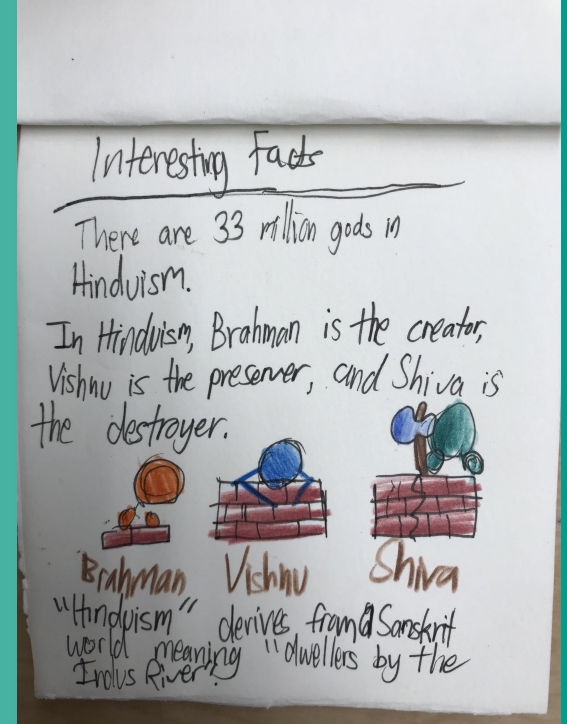 Interesting Facts
There are 33 million gods in
Hinduism.
In Hinduism, Brahman is the creator,
Vishnu is the preserver, and Shiva is
the destroyer.
Brahman Vishnu Shiva
"Hinduism" derives from a Sanskrit
world meaning "dwellers by the
Indus River".